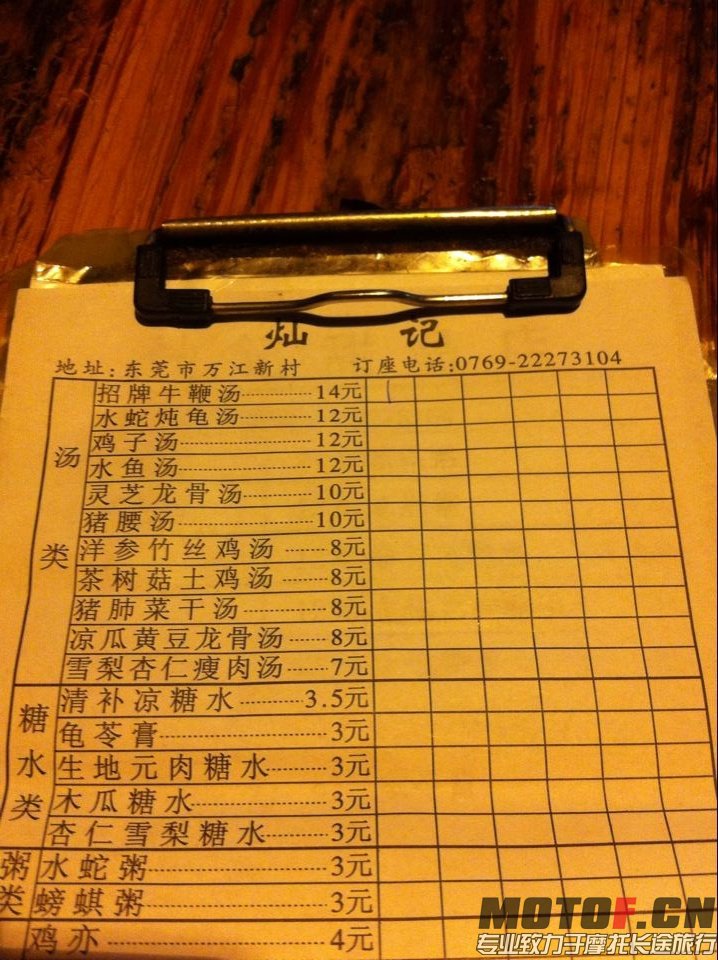 灿记
地址:东莞市万江新村 订座电话:0769-22273104
汤类
招牌牛鞭汤 14元
水蛇炖龟汤 12元
鸡子汤 12元
水鱼汤 12元
灵芝龙骨汤 10元
猪腰汤 10元
洋参竹丝鸡汤 8元
茶树菇土鸡汤 8元
猪肺菜干汤 8元
凉瓜黄豆龙骨汤 8元
雪梨杏仁瘦肉汤 7元
糖水类
清补凉糖水 3.5元
龟苓膏 3元
生地元肉糖水 3元
木瓜糖水 3元
杏仁雪梨糖水 3元
粥类
水蛇粥 3元
螃蜞粥 3元
鸡亦 4元
MOTOF.CN
专业致力于摩托长途旅行